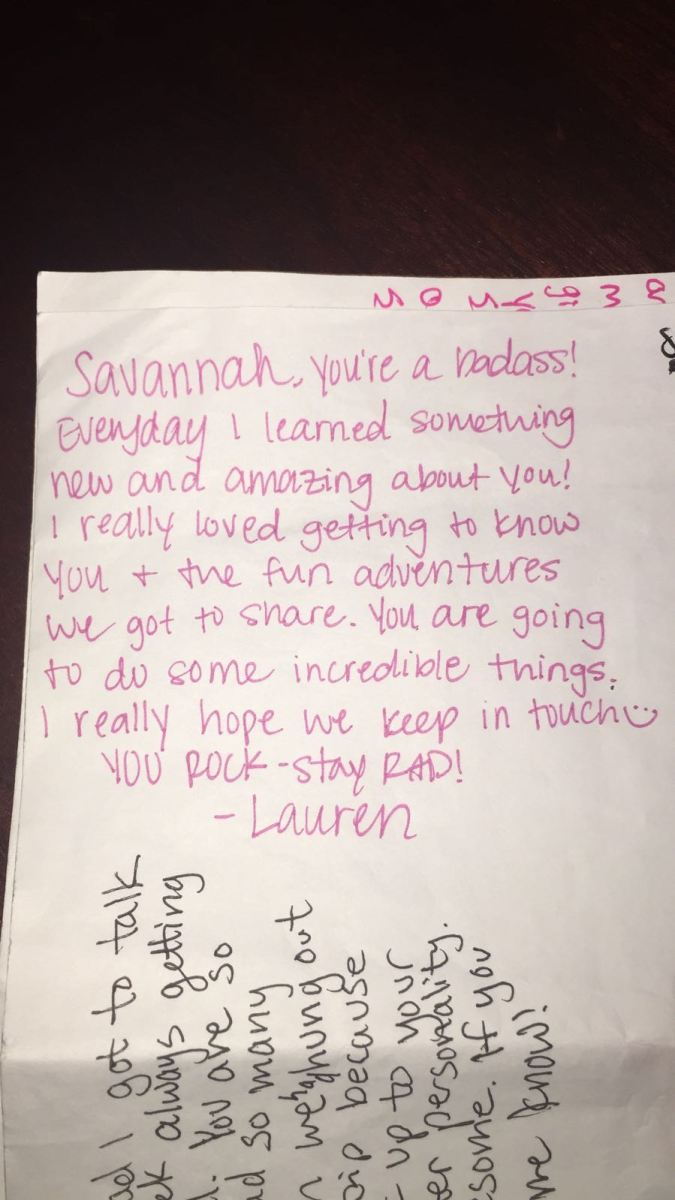 Savannah, you're a badass!
Everyday I learned something
new and amazing about you!
I really loved getting to know
you + the fun adventures
we got to share. You are going
to do some incredible things.
I really hope we keep in touch
YOU ROCK - stay RAD!
- Lauren
I got to talk
always getting
You are so
so many
we hung out
because
up to your
personality.
If you
me know!